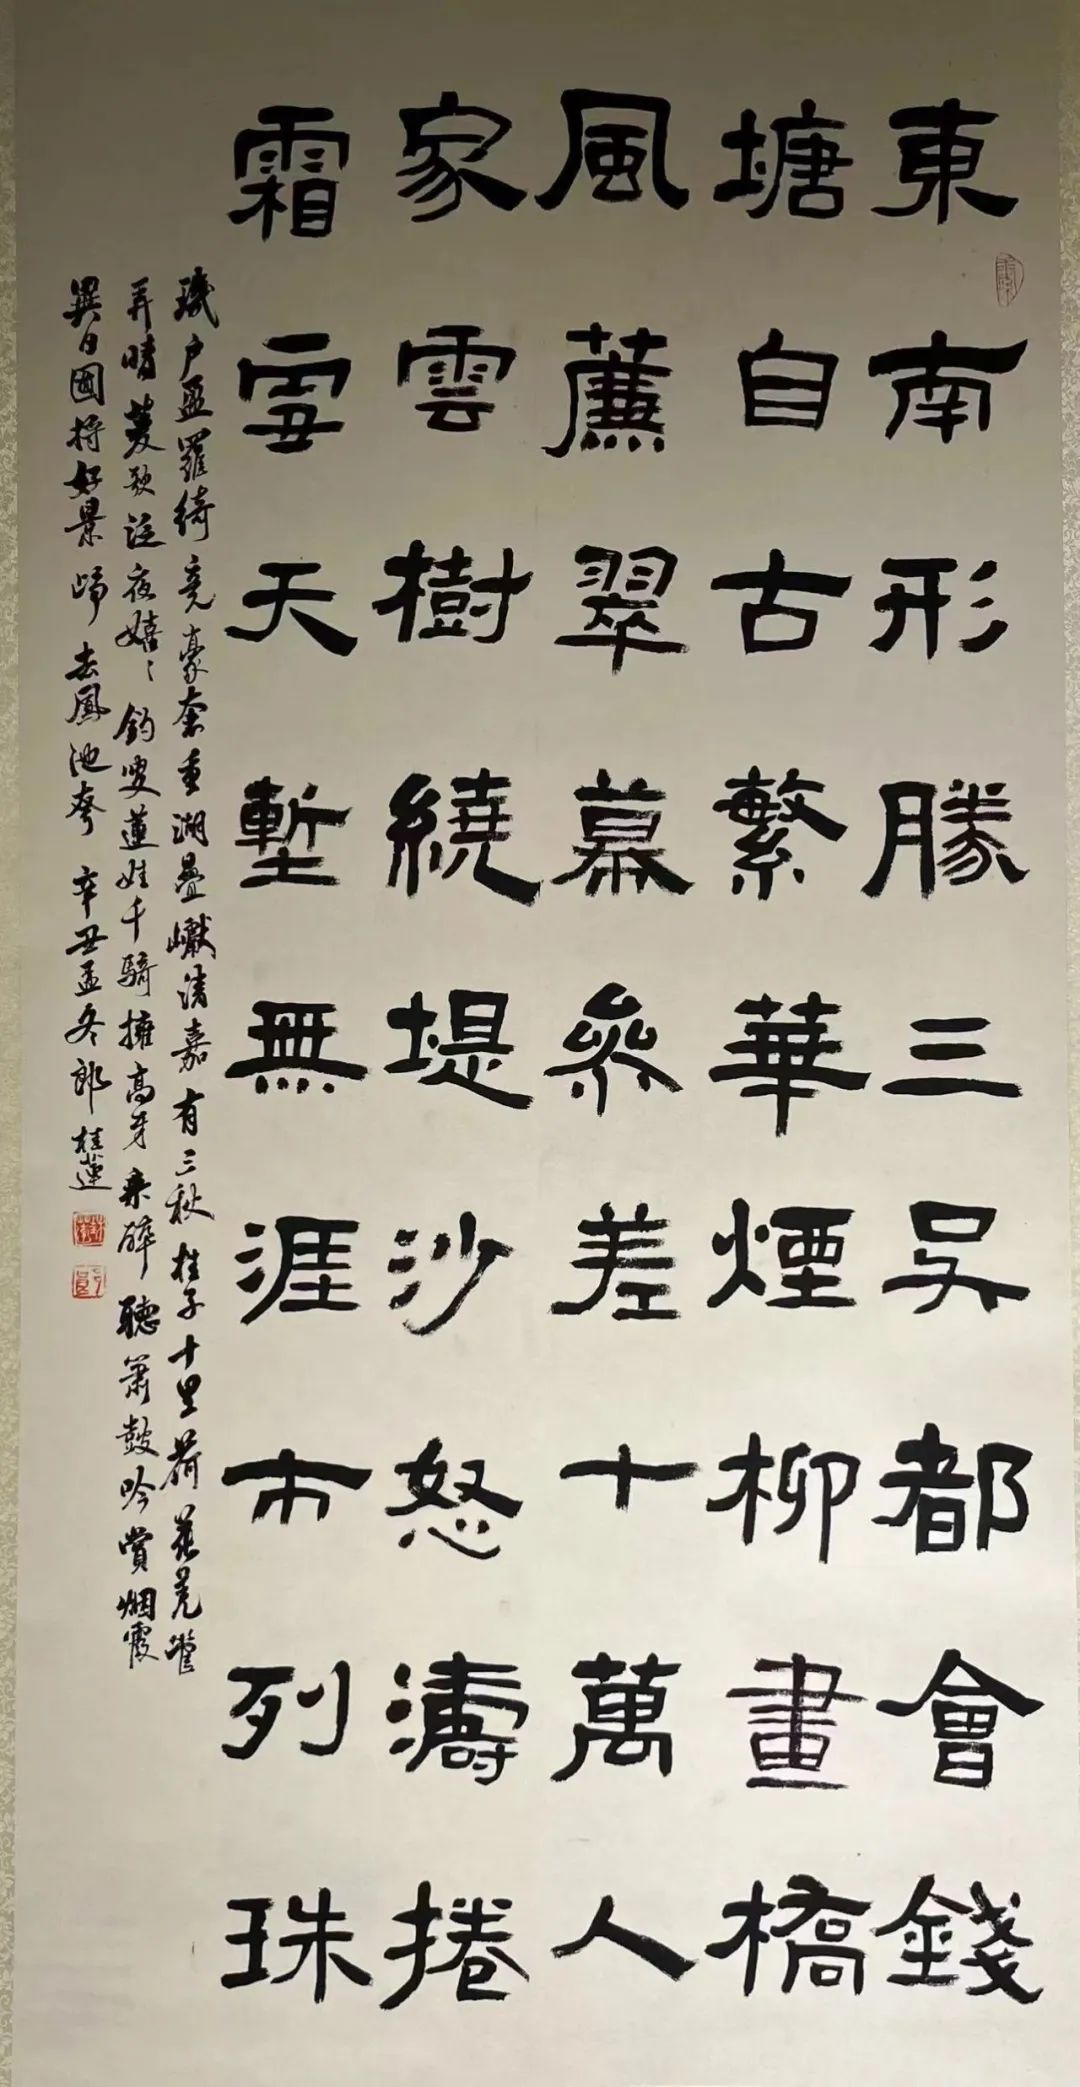 東南形勝三吳都會錢
塘自古繁華煙柳畫橋
風薕翠幕參差十萬人
家雲樹繞堤沙怒濤捲
霜雪天塹無涯市列珠
璣户盈羅綺竞豪奢重湖疊巘清嘉有三秋桂子十里荷花羌管
弄晴菱歌泛夜嬉〻釣叟蓮娃千騎擁高牙乘醉聽簫鼓吟賞烟霞
異日圖將好景歸去鳳池夸 辛丑孟冬郎桂蓮